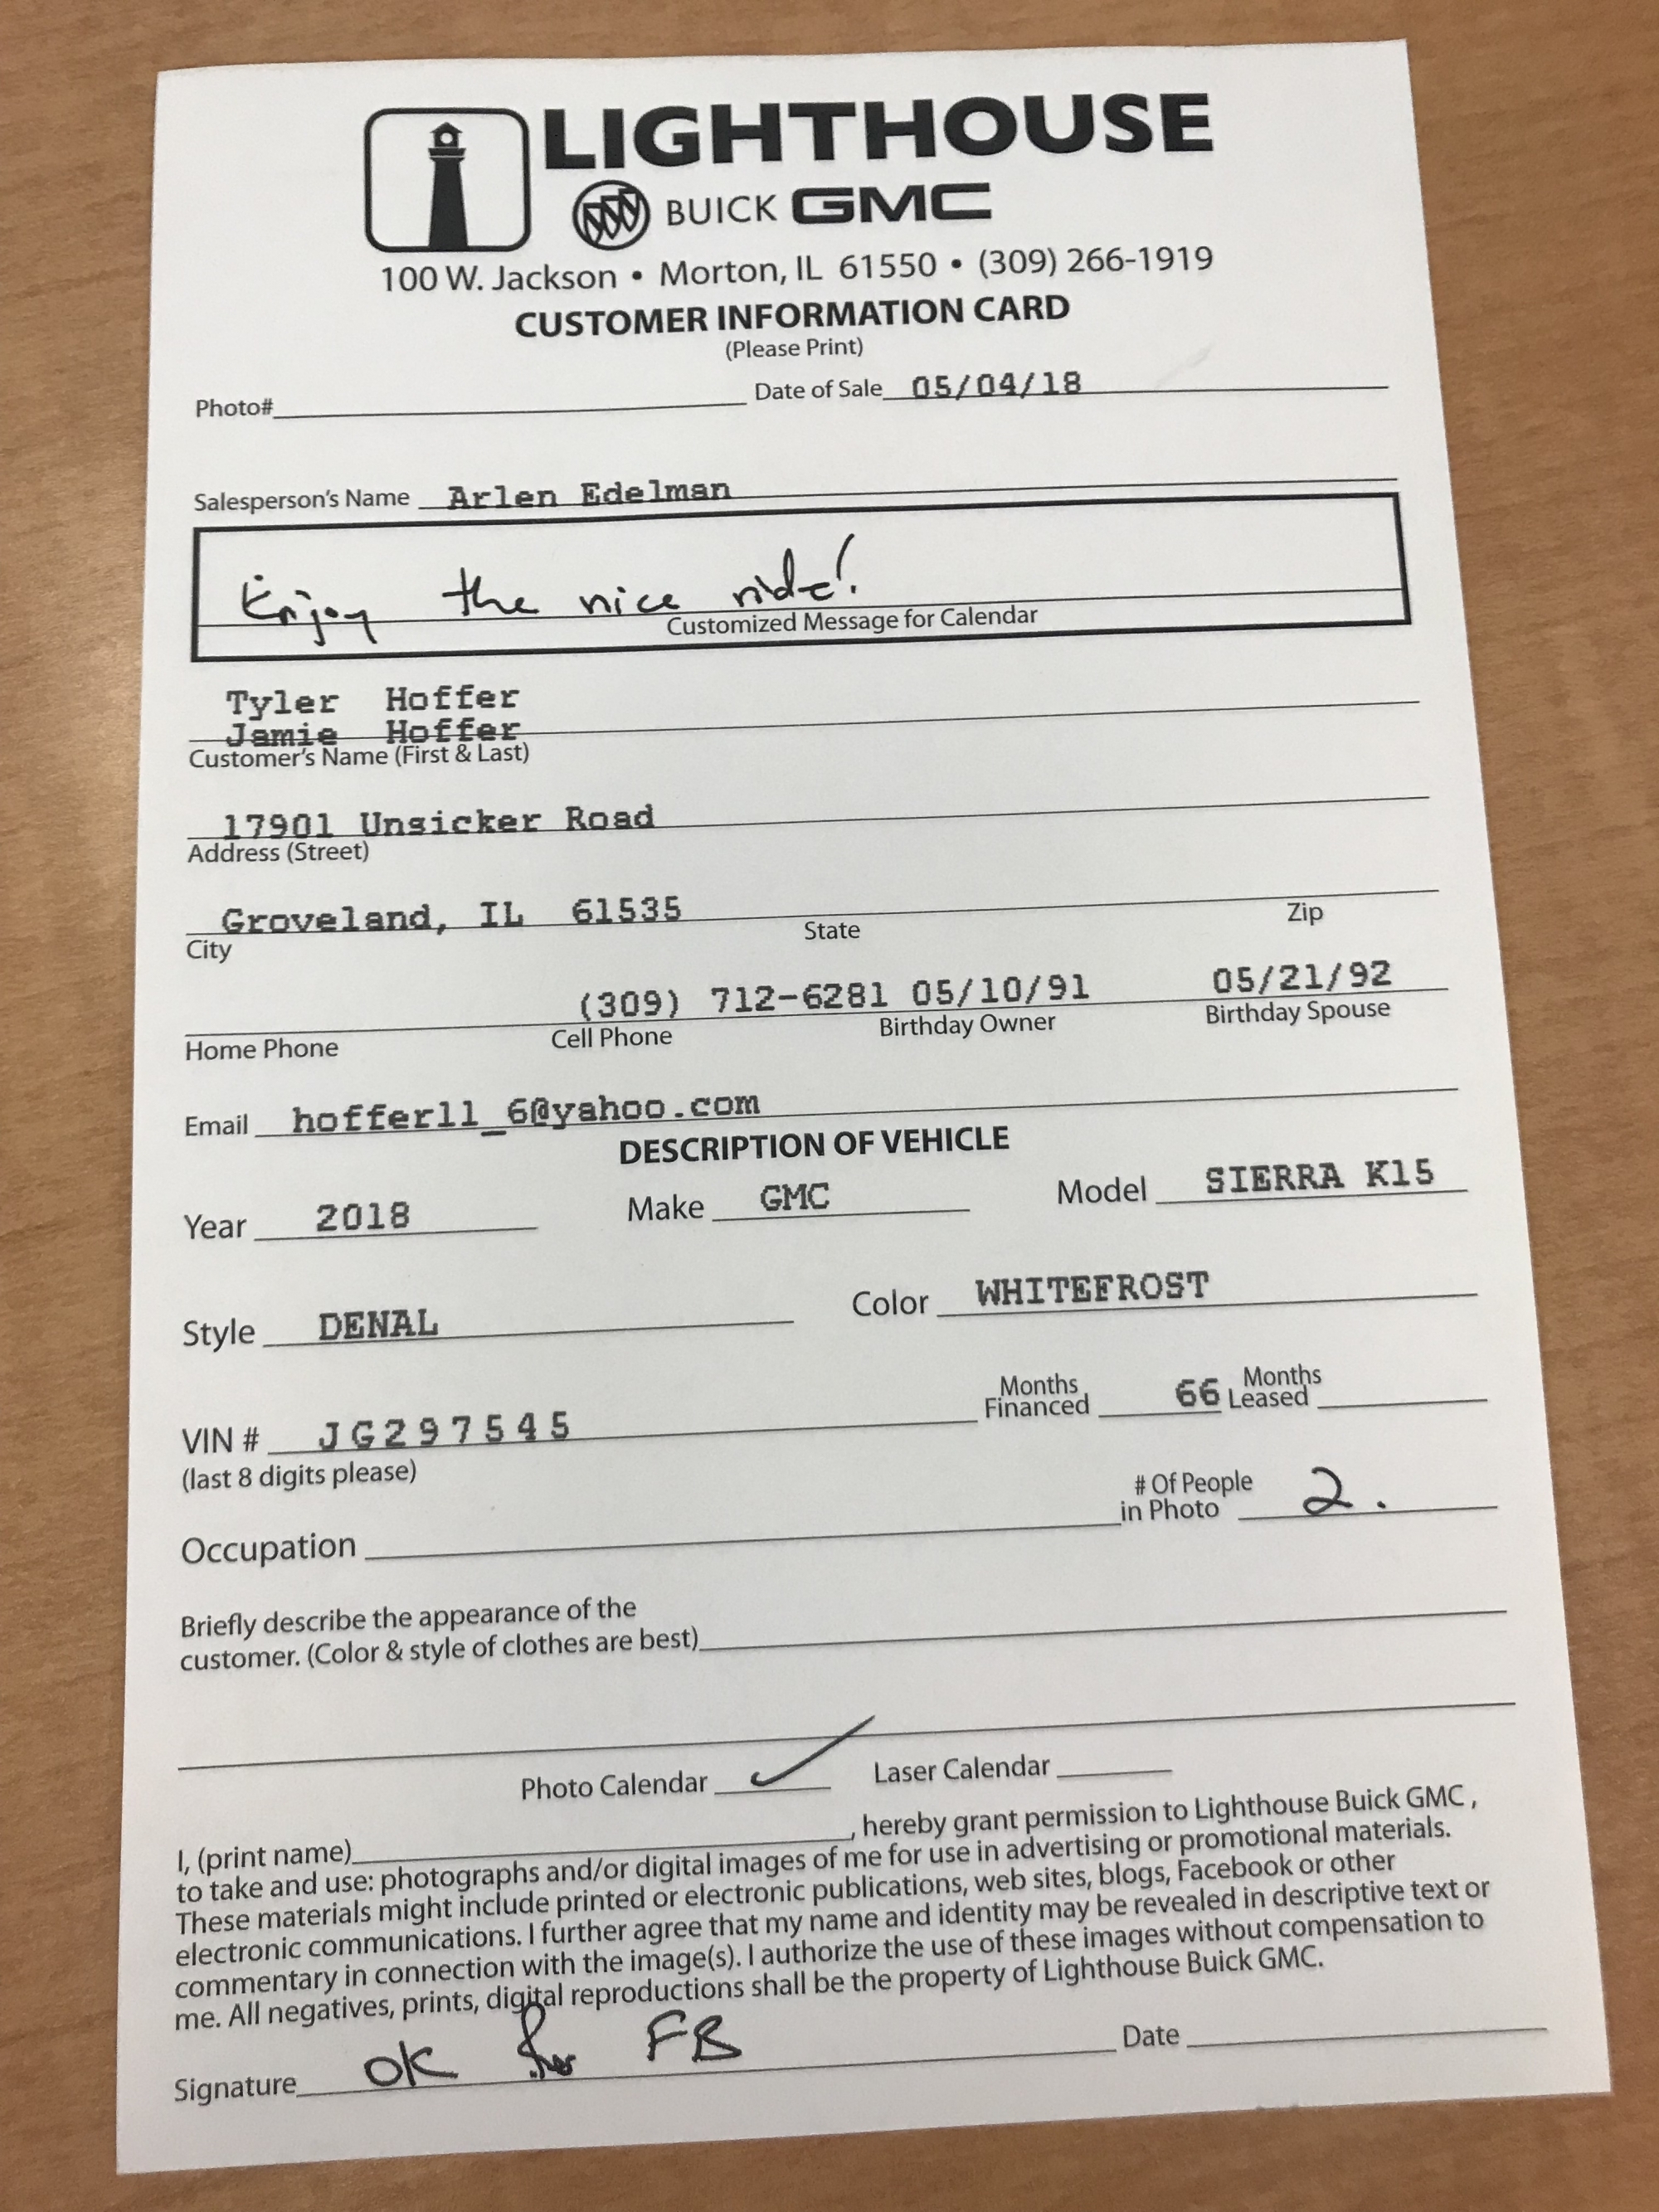 LIGHTHOUSE
BUICK GMC
100 W. Jackson • Morton, IL 61550 • (309) 266-1919
CUSTOMER INFORMATION CARD
(Please Print)
Photo# Date of Sale 05/04/18
Salesperson's Name Arlen Edelman
Enjoy the nice ride!
Customized Message for Calendar
Tyler Hoffer
Jamie Hoffer
Customer's Name (First & Last)
17901 Unsicker Road
Address (Street)
Groveland, IL 61535
City State Zip
(309) 712-6281 05/10/91 05/21/92
Home Phone Cell Phone Birthday Owner Birthday Spouse
Email hofferll_6@yahoo.com
DESCRIPTION OF VEHICLE
Year 2018 Make GMC Model SIERRA K15
Style DENAL Color WHITEFROST
VIN # JG297545 Months Financed 66 Months Leased
(last 8 digits please)
Occupation # Of People in Photo 2.
Briefly describe the appearance of the
customer. (Color & style of clothes are best)
Photo Calendar ✓ Laser Calendar
I, (print name) , hereby grant permission to Lighthouse Buick GMC ,
to take and use: photographs and/or digital images of me for use in advertising or promotional materials.
These materials might include printed or electronic publications, web sites, blogs, Facebook or other
electronic communications. I further agree that my name and identity may be revealed in descriptive text or
commentary in connection with the image(s). I authorize the use of these images without compensation to
me. All negatives, prints, digital reproductions shall be the property of Lighthouse Buick GMC.
Signature OK for FB Date